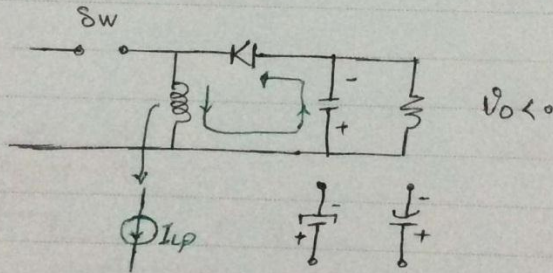 SW
-
+
V₀ < 0
I_LP
-
+
-
+